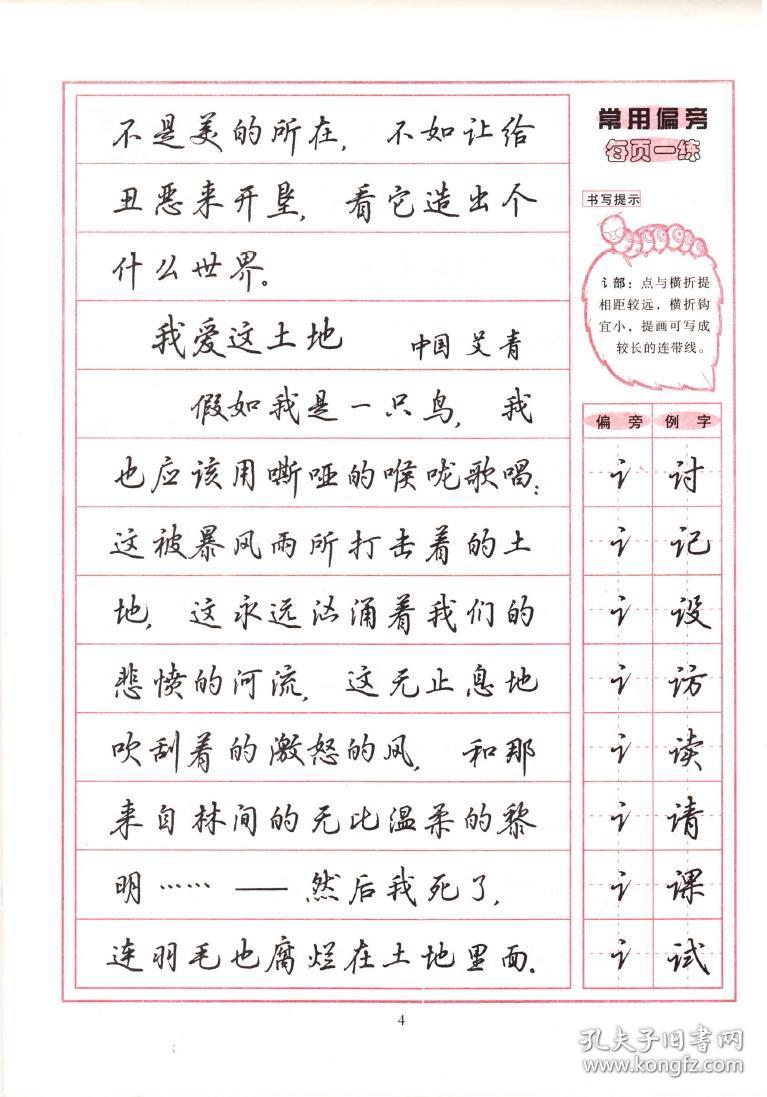 不是美的所在，不如让给
丑恶来开垦，看它造出个
什么世界。
我爱这土地 中国 艾青
假如我是一只鸟，我
也应该用嘶哑的喉咙歌唱：
这被暴风雨所打击着的土
地，这永远汹涌着我们的
悲愤的河流，这无止息地
吹刮着的激怒的风，和那
来自林间的无比温柔的黎
明……——然后我死了，
连羽毛也腐烂在土地里面。
常用偏旁
每页一练
书写提示
讠部：点与横折提
相距较远，横折钩
宜小，提画可写成
较长的连带线。
偏旁 例字
讠 讨
讠 记
讠 设
讠 访
讠 读
讠 请
讠 课
讠 试
4
孔夫子旧书网
www.kongfz.com